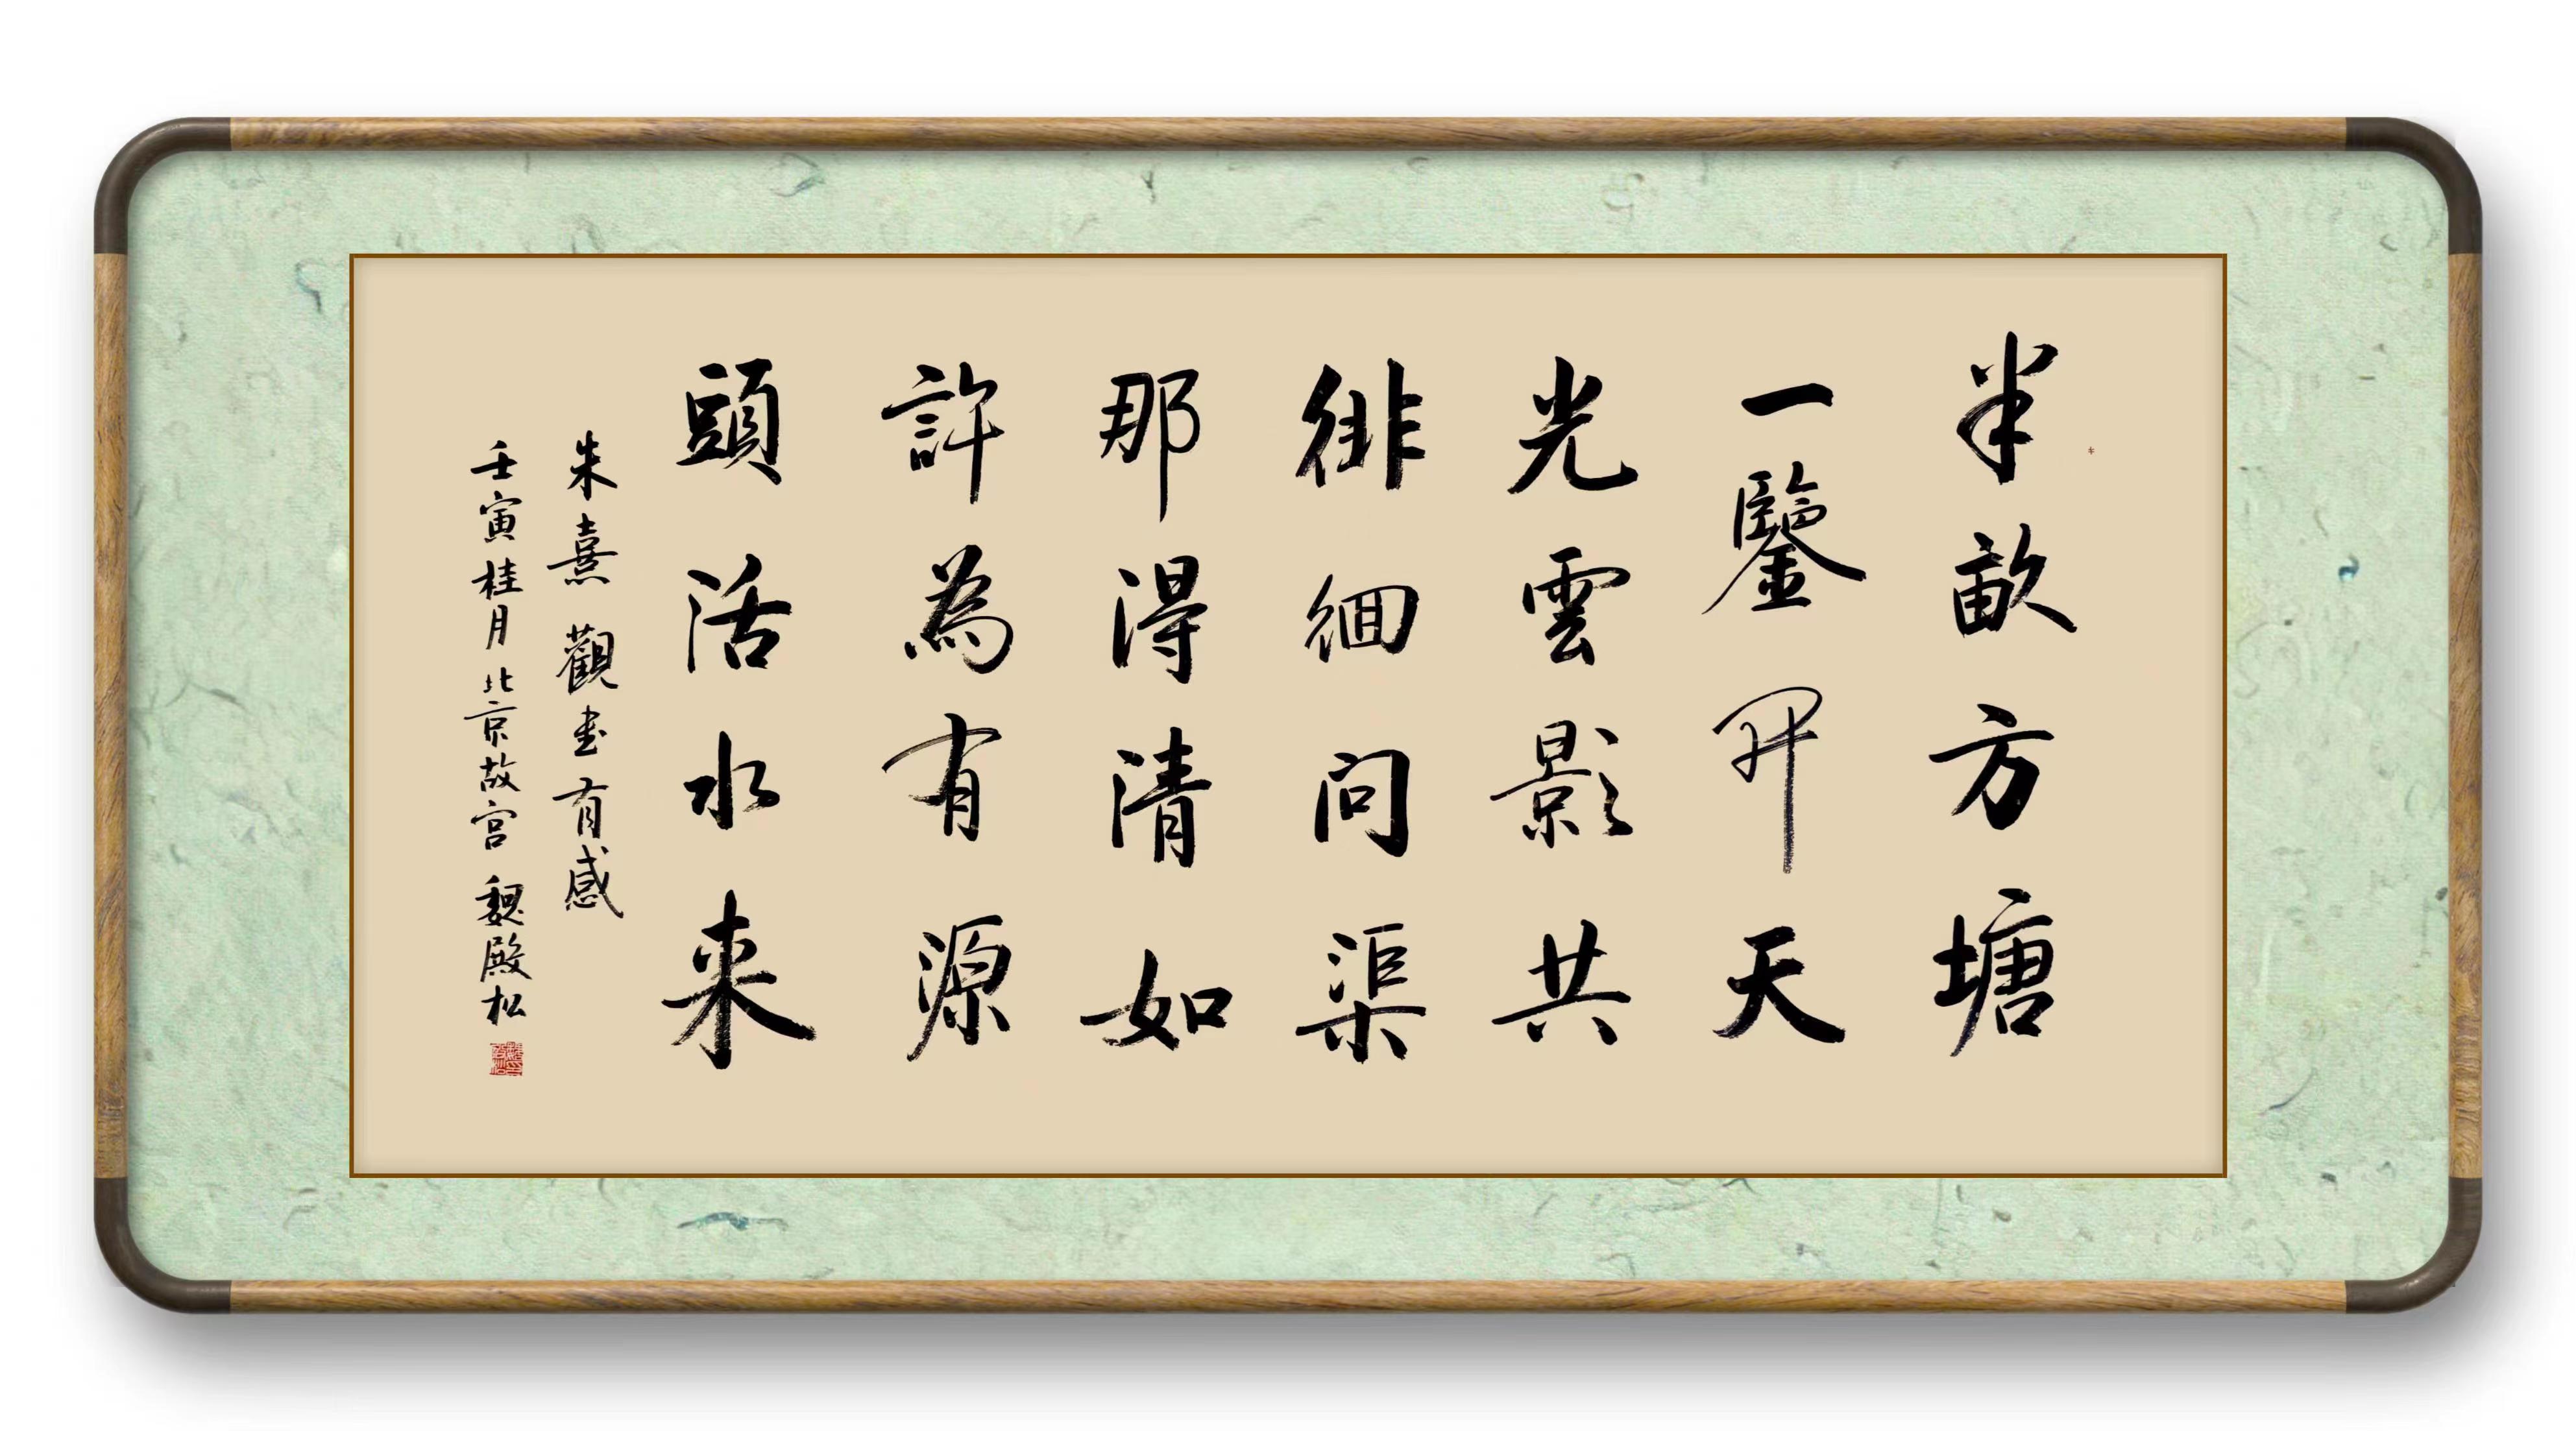 半畝方塘
一鑒開天
光雲影共
徘徊問渠
那得清如
許為有源
頭活水来
朱熹觀書有感
壬寅桂月北京故宮魏殿松